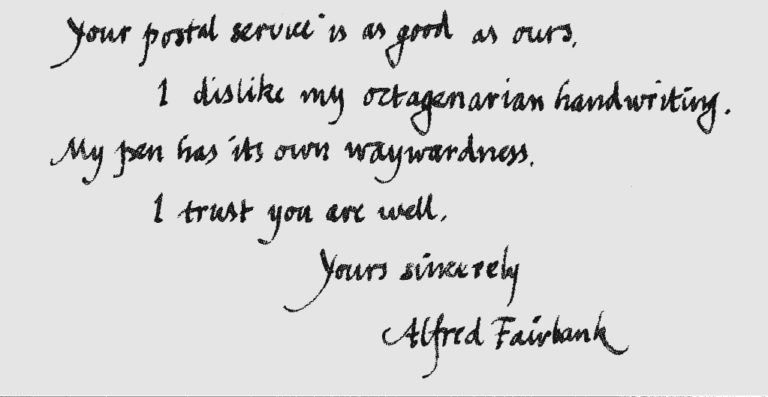 Your postal service is as good as ours.
I dislike my octagenarian handwriting.
My pen has its own waywardness.
I trust you are well.
Yours sincerely
Alfred Fairbank